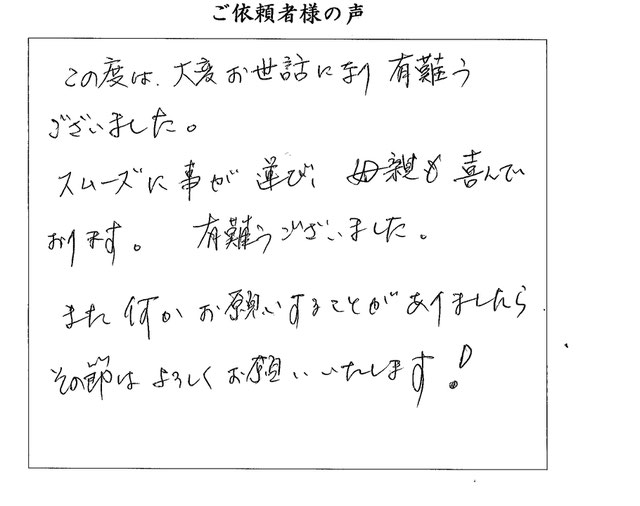 ご依頼者様の声
この度は、大変お世話になり 有難う
ございました。
スムーズに事が運び、母親も喜んで
おります。 有難うございました。
また何かお願いすることがありましたら
その節はよろしくお願いいたします!